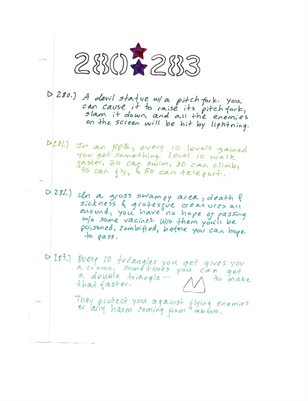 280 283
▷ 280.) A devil statue w/a pitchfork. you
can cause it to raise its pitchfork,
slam it down, and all the enemies
on the screen will be hit by lightning.
281.) In an RPG, every 10 levels gained
you get something. Level 10 walk
faster, 20 can swim, 30 can climb,
40 can fly, & 50 can teleport.
▷ 282.) In a gross swampy area, death &
sickness & grotesque creatures all
around, you have no hope of passing
w/o some vaccines. W/o them you'll be
poisoned, zombified, before you can hope
to pass.
▷ 283.) Every 10 triangles you get gives you
a crown, sometimes you can get
a double triangle — to make
that faster.
They protect you against flying enemies
or any harm coming from above.